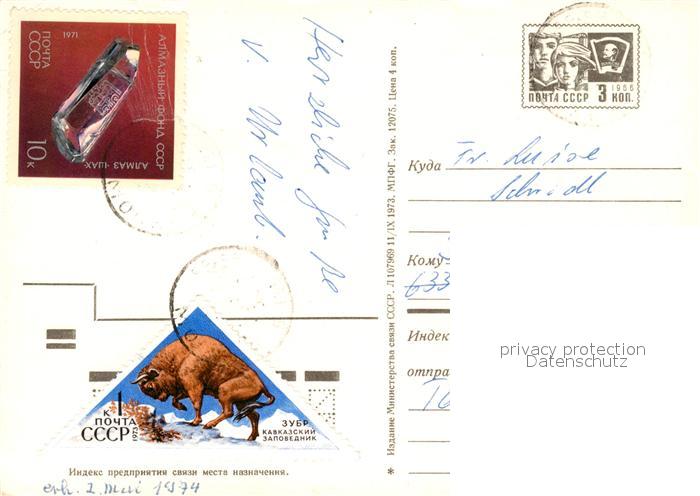 1971
ПОЧТА
СССР
АЛМАЗНЫЙ ФОНД СССР
АЛМАЗ «ШАХ»
10 К
Herzliche Grüße
v. Urlaub.
ПОЧТА СССР 3 КОП.
1966
Куда Fr. Luise
Schmidl
Кому
633
Индекс
отпра
privacy protection
Datenschutz
* Издание Министерства связи СССР. Л 107969 11/IX 1973. МПФГ. Зак. 12075. Цена 4 коп.
К 1
ПОЧТА
СССР
1973
ЗУБР
КАВКАЗСКИЙ
ЗАПОВЕДНИК
Индекс предприятия связи места назначения.
erh. 2. Mai 1974